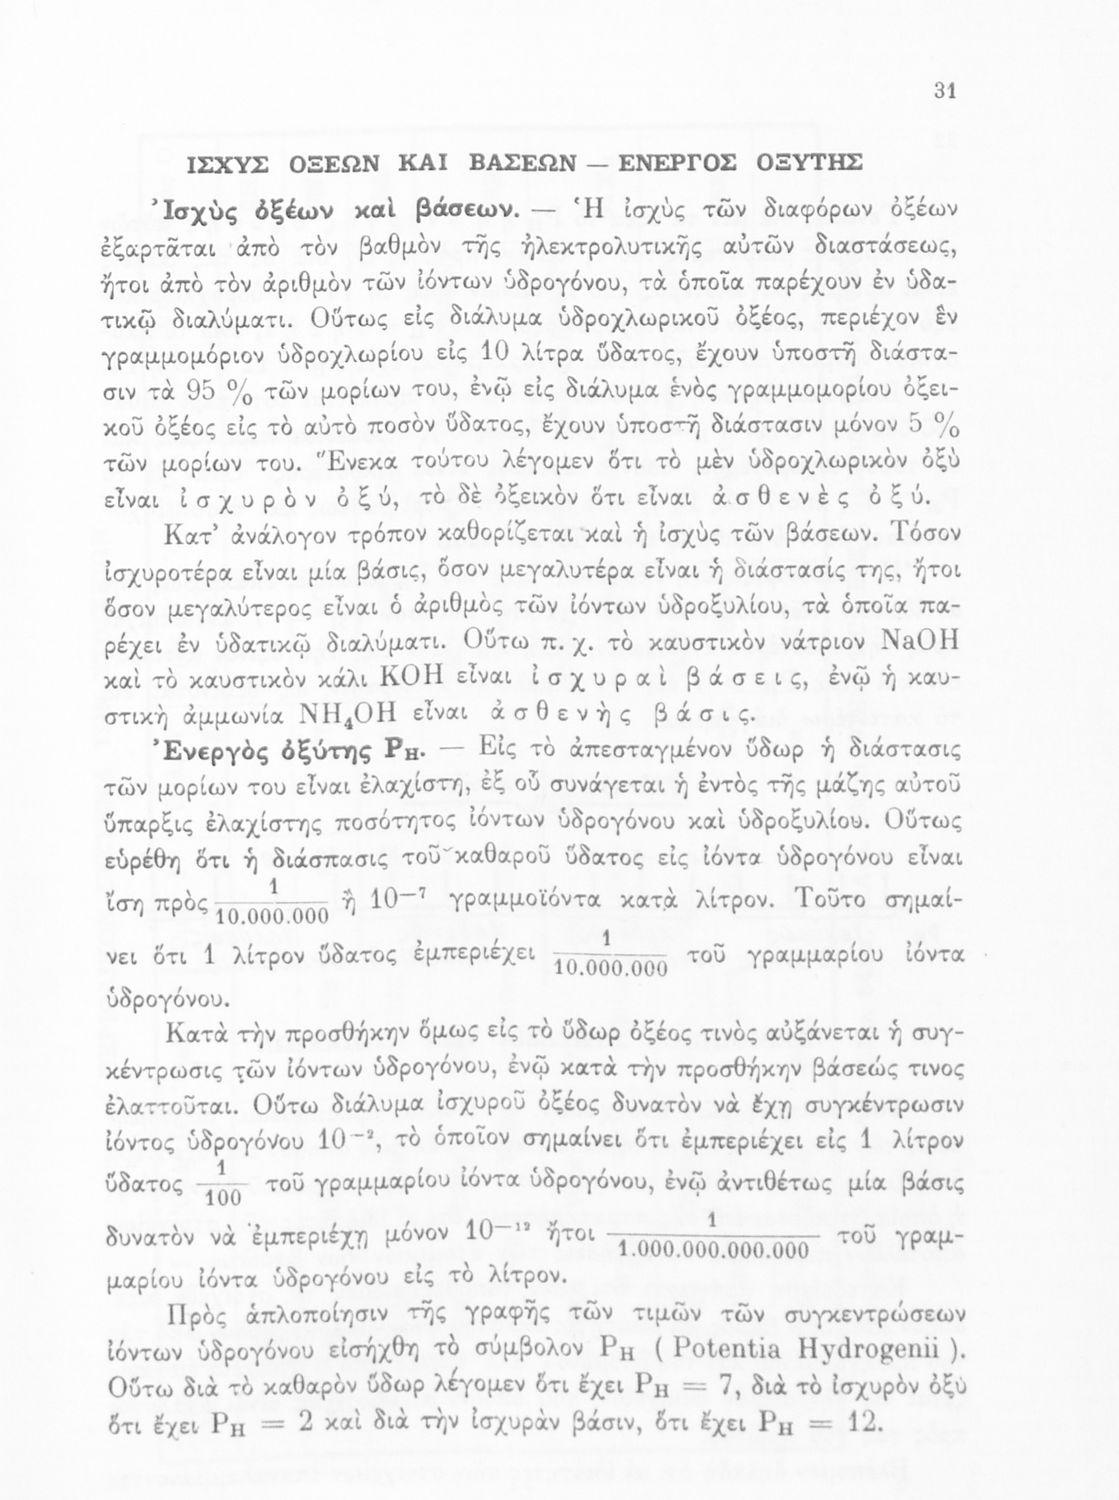 31
ΙΣΧΥΣ ΟΞΕΩΝ ΚΑΙ ΒΑΣΕΩΝ — ΕΝΕΡΓΟΣ ΟΞΥΤΗΣ
Ἰσχὺς ὀξέων καὶ βάσεων. — Ἡ ἰσχὺς τῶν διαφόρων ὀξέων
ἐξαρτᾶται ἀπὸ τὸν βαθμὸν τῆς ἠλεκτρολυτικῆς αὐτῶν διαστάσεως,
ἤτοι ἀπὸ τὸν ἀριθμὸν τῶν ἰόντων ὑδρογόνου, τὰ ὁποῖα παρέχουν ἐν ὑδα-
τικῷ διαλύματι. Οὕτως εἰς διάλυμα ὑδροχλωρικοῦ ὀξέος, περιέχον ἓν
γραμμομόριον ὑδροχλωρίου εἰς 10 λίτρα ὕδατος, ἔχουν ὑποστῆ διάστα-
σιν τὰ 95 % τῶν μορίων του, ἐνῷ εἰς διάλυμα ἑνὸς γραμμομορίου ὀξει-
κοῦ ὀξέος εἰς τὸ αὐτὸ ποσὸν ὕδατος, ἔχουν ὑποστῆ διάστασιν μόνον 5 %
τῶν μορίων του. Ἕνεκα τούτου λέγομεν ὅτι τὸ μὲν ὑδροχλωρικὸν ὀξὺ
εἶναι ἰσχυρὸν ὀξύ, τὸ δὲ ὀξεικὸν ὅτι εἶναι ἀσθενὲς ὀξύ.
Κατ’ ἀνάλογον τρόπον καθορίζεται καὶ ἡ ἰσχὺς τῶν βάσεων. Τόσον
ἰσχυροτέρα εἶναι μία βάσις, ὅσον μεγαλυτέρα εἶναι ἡ διάστασίς της, ἤτοι
ὅσον μεγαλύτερος εἶναι ὁ ἀριθμὸς τῶν ἰόντων ὑδροξυλίου, τὰ ὁποῖα πα-
ρέχει ἐν ὑδατικῷ διαλύματι. Οὕτω π. χ. τὸ καυστικὸν νάτριον NaOH
καὶ τὸ καυστικὸν κάλι KOH εἶναι ἰσχυραὶ βάσεις, ἐνῷ ἡ καυ-
στικὴ ἀμμωνία NH₄OH εἶναι ἀσθενὴς βάσις.
Ἐνεργὸς ὀξύτης Pн. — Εἰς τὸ ἀπεσταγμένον ὕδωρ ἡ διάστασις
τῶν μορίων του εἶναι ἐλαχίστη, ἐξ οὗ συνάγεται ἡ ἐντὸς τῆς μάζης αὐτοῦ
ὕπαρξις ἐλαχίστης ποσότητος ἰόντων ὑδρογόνου καὶ ὑδροξυλίου. Οὕτως
εὑρέθη ὅτι ἡ διάσπασις τοῦ καθαροῦ ὕδατος εἰς ἰόντα ὑδρογόνου εἶναι
ἴση πρὸς 1/10.000.000 ἢ 10—⁷ γραμμοϊόντα κατὰ λίτρον. Τοῦτο σημαί-
νει ὅτι 1 λίτρον ὕδατος ἐμπεριέχει 1/10.000.000 τοῦ γραμμαρίου ἰόντα
ὑδρογόνου.
Κατὰ τὴν προσθήκην ὅμως εἰς τὸ ὕδωρ ὀξέος τινὸς αὐξάνεται ἡ συγ-
κέντρωσις τῶν ἰόντων ὑδρογόνου, ἐνῷ κατὰ τὴν προσθήκην βάσεώς τινος
ἐλαττοῦται. Οὕτω διάλυμα ἰσχυροῦ ὀξέος δυνατὸν νὰ ἔχῃ συγκέντρωσιν
ἰόντος ὑδρογόνου 10—², τὸ ὁποῖον σημαίνει ὅτι ἐμπεριέχει εἰς 1 λίτρον
ὕδατος 1/100 τοῦ γραμμαρίου ἰόντα ὑδρογόνου, ἐνῷ ἀντιθέτως μία βάσις
δυνατὸν νὰ ἐμπεριέχῃ μόνον 10—¹² ἤτοι 1/1.000.000.000.000 τοῦ γραμ-
μαρίου ἰόντα ὑδρογόνου εἰς τὸ λίτρον.
Πρὸς ἁπλοποίησιν τῆς γραφῆς τῶν τιμῶν τῶν συγκεντρώσεων
ἰόντων ὑδρογόνου εἰσήχθη τὸ σύμβολον Pн ( Potentia Hydrogenii ).
Οὕτω διὰ τὸ καθαρὸν ὕδωρ λέγομεν ὅτι ἔχει Pн = 7, διὰ τὸ ἰσχυρὸν ὀξὺ
ὅτι ἔχει Pн = 2 καὶ διὰ τὴν ἰσχυρὰν βάσιν, ὅτι ἔχει Pн = 12.